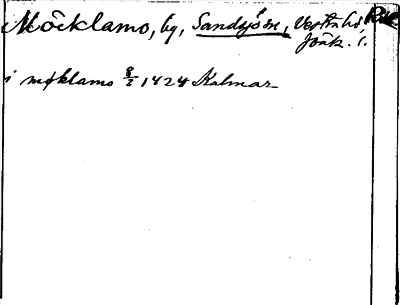 Möcklamo, by, Sandsjö sn, Västra hd, RK
Jönk. l.
i møklamo 8/2 1424 Kalmar